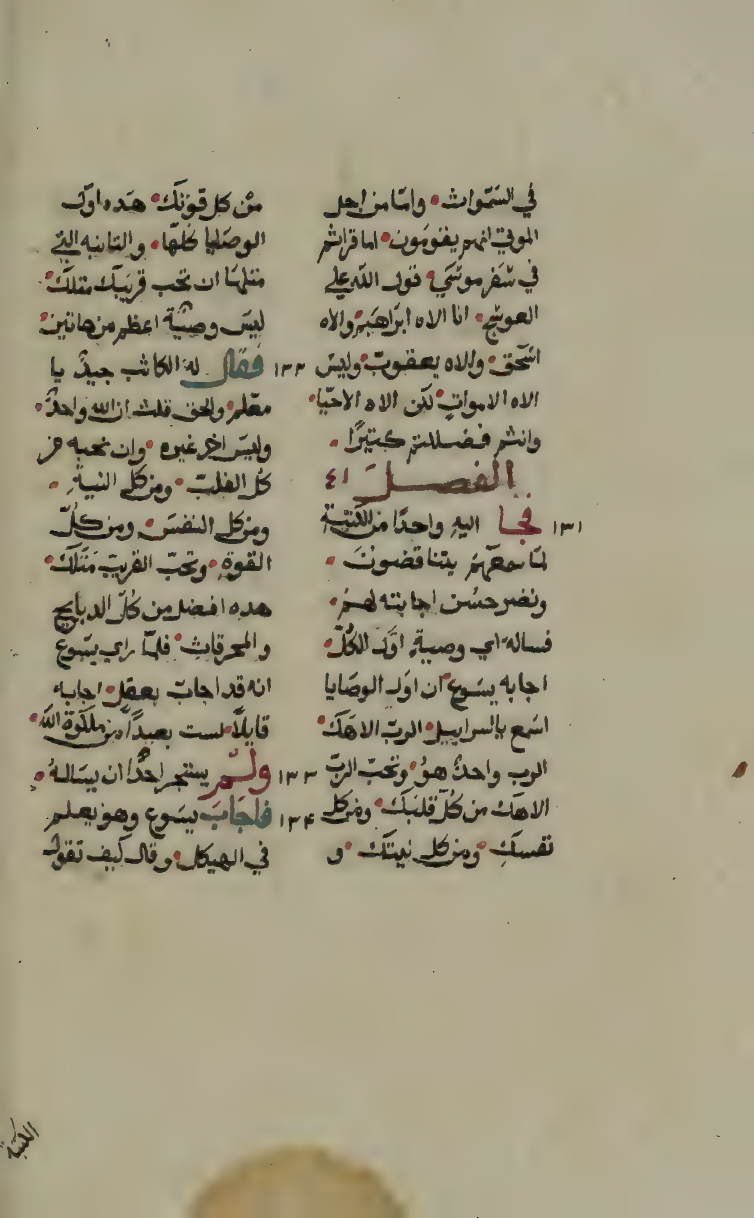 في السموات واما من اجل
الموتي انهم يقومون اما قراتم
في سفر موسي قول الله علي
العوسج انا الاه ابراهيم والاه
اسحق والاه يعقوب وليس
الاه الاموات لكن الاه الاحيا
وانتم فضللتم كتيرًا
الفصل ٤١
١٣١ فجا اليه واحدًا من الكتبة
لما سمعهم يتناقضون
ونضر حسن اجابته لهم
فساله اي وصية اول الكل
اجابه يسوع ان اول الوصايا
اسمع يا اسراييل الرب الاهك
الرب واحدٌ هو وتحب الرب
الاهك من كل قلبك ومن كل
نفسك ومن كل نيتك و
من كل قوتك هده اول
الوصايا كلها والتانيه التي
متلها ان تحب قريبك متلك
ليس وصية اعظم من هاتين
١٣٢ فقال له الكاتب جيدٌ يا
معلم والحق قلت ان الله واحدٌ
وليس اخر غيره وان تحبه من
كل القلب ومن كل النية
ومن كل النفس ومن كل
القوة وتحب القريب متلك
هده افضل من كل الدبايح
والمحرقات فلما راي يسوع
انه قد اجاب بعقل اجابه
قايلًا لست بعيدًا من ملكوة الله
١٣٣ ولم يستجر احدًا ان يساله
١٣٤ فاجاب يسوع وهو يعلم
في الهيكل وقال كيف تقول
الكتبة